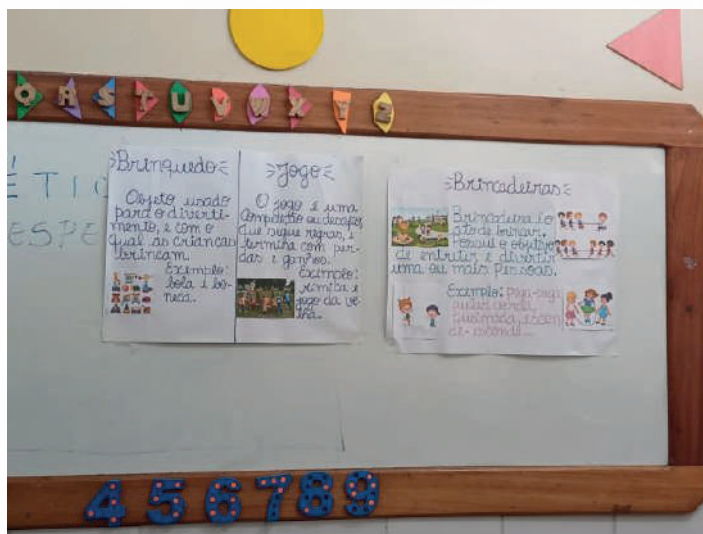 Q R S T U V W X Y Z
ÉTIC
ESPE
Brinquedo
Objeto usado
para o diverti-
mento, e com o
qual as crianças
brincam.
Exemplo:
bola e bo-
neca.
Jogo
O jogo é uma
competição ou desafio,
que segue regras, e
termina com per-
das e ganhos.
Exemplo:
rimiba e
jogo da ve-
lha.
Brincadeiras
Brincadeira é o
ato de brincar.
Possui o objetivo
de entreter e divertir
uma ou mais pessoas.
Exemplo: pega-pega
pular corda,
queimada, escon
de-esconde...
4 5 6 7 8 9